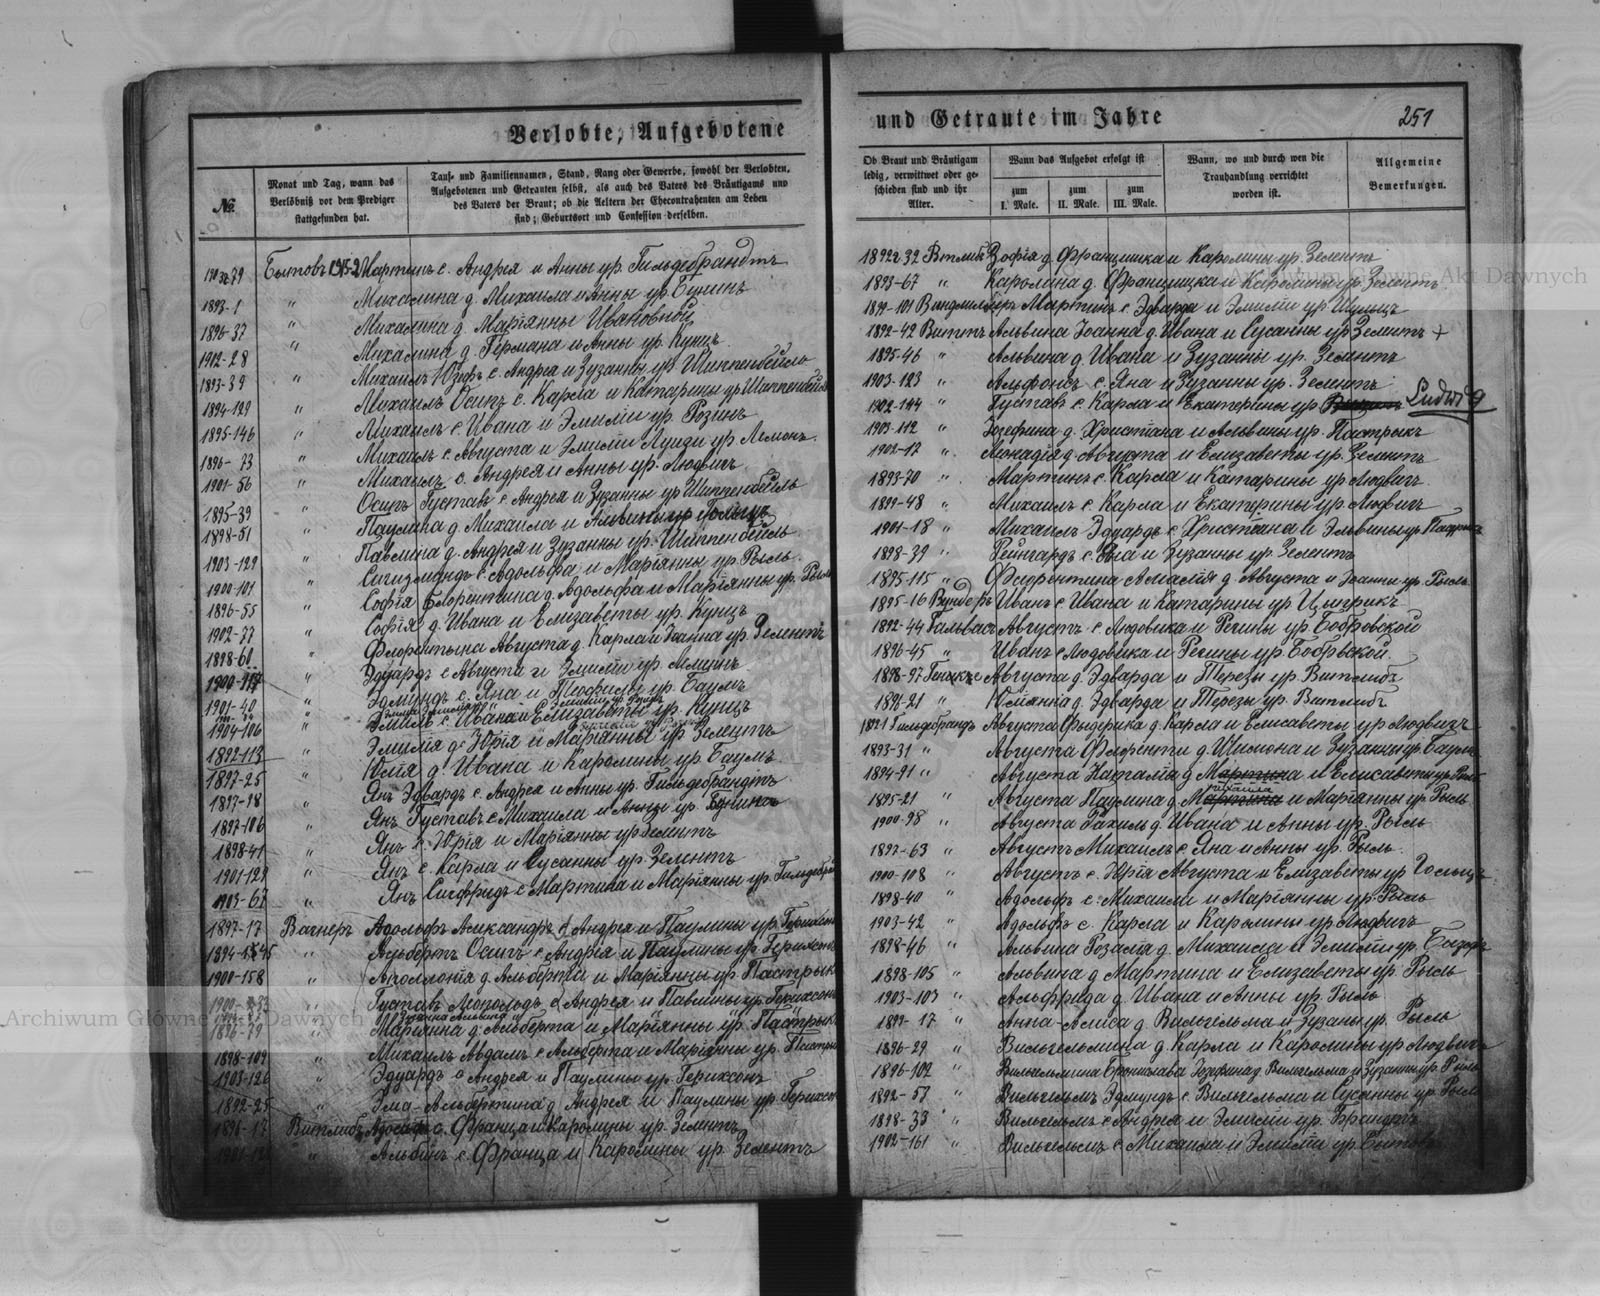 Verlobte, Aufgebotene
№
Monat und Tag, wann das
Verlöbniß vor dem Prediger
stattgefunden hat.
Tauf- und Familiennamen, Stand, Rang oder Gewerbe, sowohl der Verlobten,
Aufgebotenen und Getrauten selbst, als auch des Vaters des Bräutigams und
des Vaters der Braut; ob die Aeltern der Ehecontrahenten am Leben
sind; Geburtsort und Confession derselben.
Бытовъ Мартинъ с. Андрея и Анны ур. Гильдебрандтъ
1893-1 " Михалина д. Михаила и Анны ур.
1896-37 " Михалина д. Маріянны Ивановной
1902-28 " Михалина д. Германа и Анны ур. Кунцъ
1893-39 Михаилъ Юзефъ с. Андрея и Зузанны ур. Шиппенбейль
1894-129 " Михаилъ Осипъ с. Карла и Катарины ур. Шиппенбейль
1895-146 " Михаилъ с. Ивана и Эмиліи ур. Розинъ
1896-73 " Михаилъ с. Августа и Эмиліи Луизи ур. Лемонъ
1901-56 " Михаилъ с. Андрея и Анны ур. Людвигъ
1895-39 " Осипъ Густавъ с. Андрея и Зузанны ур. Шиппенбейль
1898-51 " Паулина д. Михаила и Альвины ур. Гольцъ
1903-129 " Павлина д. Андрея и Зузанны ур. Шиппенбейль
1900-101 " Сигизмундъ с. Адольфа и Маріянны ур. Рыль
1896-55 " Софія Флорентина д. Адольфа и Маріянны ур. Рыль
1902-77 " Софія д. Ивана и Елизаветы ур. Кунцъ
1898-60 " Флорентына Августа д. Карла и Іоанна ур. Зелентъ
" Эдуардъ с. Августа и Эмиліи ур.
1901-40 " Эдмундъ с. Яна и Теофилы ур. Баумъ
1904-106 " Эмиль с. Ивана и Елизаветы ур. Кунцъ
1892-113 " Эмилія д. Юрія и Маріянны ур. Зелентъ
1897-25 " Юлія д. Ивана и Каролины ур. Баумъ
1897-18 " Янъ Эдвардъ с. Андрея и Анны ур. Гильдебрандтъ
1897-106 " Янъ Густавъ с. Михаила и Анны ур.
1898-41 " Янъ с. Юрія и Маріянны ур. Зелентъ
1901-128 " Янъ с. Карла и Сусанны ур. Зелентъ
1903-67 " Янъ Сигфридъ с. Мартина и Маріянны ур.
1897-17 Вагнеръ Адольфъ Александръ с. Андрея и Паулины ур. Герихсонъ
Альбертъ Осипъ с. Андрея и Паулины ур. Герихсонъ
1900-158 Аполлонія д. Альберта и Маріянны ур. Пастрыкъ
" Густавъ Леопольдъ с. Андрея и Павлины ур. Герихсонъ
1896-79 " Маріянна д. Альберта и Маріянны ур. Пастрыкъ
1898-109 " Михаилъ Адамъ с. Альберта и Маріянны ур.
1903-126 " Эдуардъ с. Андрея и Паулины ур. Герихсонъ
1892-25 " Эма-Альбертина д. Андрея и Паулины ур.
Витлибъ Адольфъ с. Франца и Каролины ур. Зелентъ
" Альбинъ с. Франца и Каролины ур. Зелентъ
und Getraute im Jahre
251
Ob Braut und Bräutigam
ledig, verwittwet oder ge-
schieden sind und ihr
Alter.
Wann das Aufgebot erfolgt ist
zum
I. Male.
zum
II. Male.
zum
III. Male.
Wann, wo und durch wen die
Trauhandlung verrichtet
worden ist.
Allgemeine
Bemerkungen.
Зофія д. Францишка и Каролины ур. Зелентъ
1893-67 " Каролина д. Францишка и Каролины ур. Зелентъ
1899-101 Виндмильеръ Мартинъ с. Эдварда и Эмиліи ур. Шульцъ
1892-42 Виттъ Альвина Іоанна д. Ивана и Сусанны ур. Зелентъ +
1895-46 " Альвина д. Ивана и Зузанны ур. Зелентъ
1903-123 " Альфонсъ с. Яна и Зузанны ур. Зелентъ
1902-144 " Густавъ с. Карла и Екатерины ур. Ludwig
1903-112 " Іозефина д. Христіана и Альвины ур. Пастрыкъ
1902-17 " Леонадія д. Августа и Елизаветы ур. Зелентъ
1893-70 " Мартинъ с. Карла и Катарины ур. Людвигъ
1899-48 " Михаилъ с. Карла и Екатерины ур. Людвигъ
1901-18 " Михаилъ Эдуардъ с. Христіана и Эльвины ур.
1898-39 " Рейнгардъ с. Яна и Зузанны ур. Зелентъ
1895-115 " Флорентина Амалія д. Августа и Іоанны ур. Рыль
1895-16 Вундеръ Иванъ с. Ивана и Катарины ур.
1892-44 Гальвасъ Августъ с. Людовика и Регины ур. Бобровской
1896-45 " Иванъ с. Людовика и Регины ур. Бобровской
1898-97 Августа д. Эдварда и Терезы ур. Витлибъ
1891-21 " Юліянна д. Эдварда и Терезы ур. Витлибъ
Гильдебрандъ Августа Фридрика д. Карла и Елисаветы ур. Людвигъ
1893-31 " Августа Флоренти д. Шимона и Зузанни ур. Баумъ
1894-91 " Августа Наталія д. Мартина и Елисаветы ур. Рыль
1895-21 " Августа Паулина д. Михаила и Маріянны ур. Рыль
1900-98 " Августа Рахиль д. Ивана и Анны ур. Рыль
1892-63 " Августъ Михаилъ с. Яна и Анны ур. Рыль
1900-108 " Августъ с. Юрія Августа и Елизаветы ур. Гольцъ
1898-40 " Адольфъ с. Михаила и Маріянны ур. Рыль
1903-42 " Адольфъ с. Карла и Каролины ур. Людвигъ
1898-46 " Альвина Розалія д. Михаила и Эмиліи ур.
1898-105 " Альвина д. Мартина и Елизаветы ур. Рыль
1903-103 " Альфрида д. Ивана и Анны ур. Рыль
1899-17 " Анна-Алиса д. Вильгельма и Зузаны ур. Рыль
1896-29 " Вильгельмина д. Карла и Каролины ур. Людвигъ
1896-102 " Вильгельмина Бронислава Іозефина д. Вильгельма и Зузанны ур. Рыль
1892-57 " Вильгельмъ Эдмундъ с. Вильгельма и Сусанны ур. Рыль
1898-33 " Вильгельмъ с. Андрея и Эмиліи ур. Брандтъ
1902-161 " Вильгельмъ с. Михаила и Эмиліи ур. Бытовъ
Archiwum Główne Akt Dawnych
Archiwum Główne Akt Dawnych